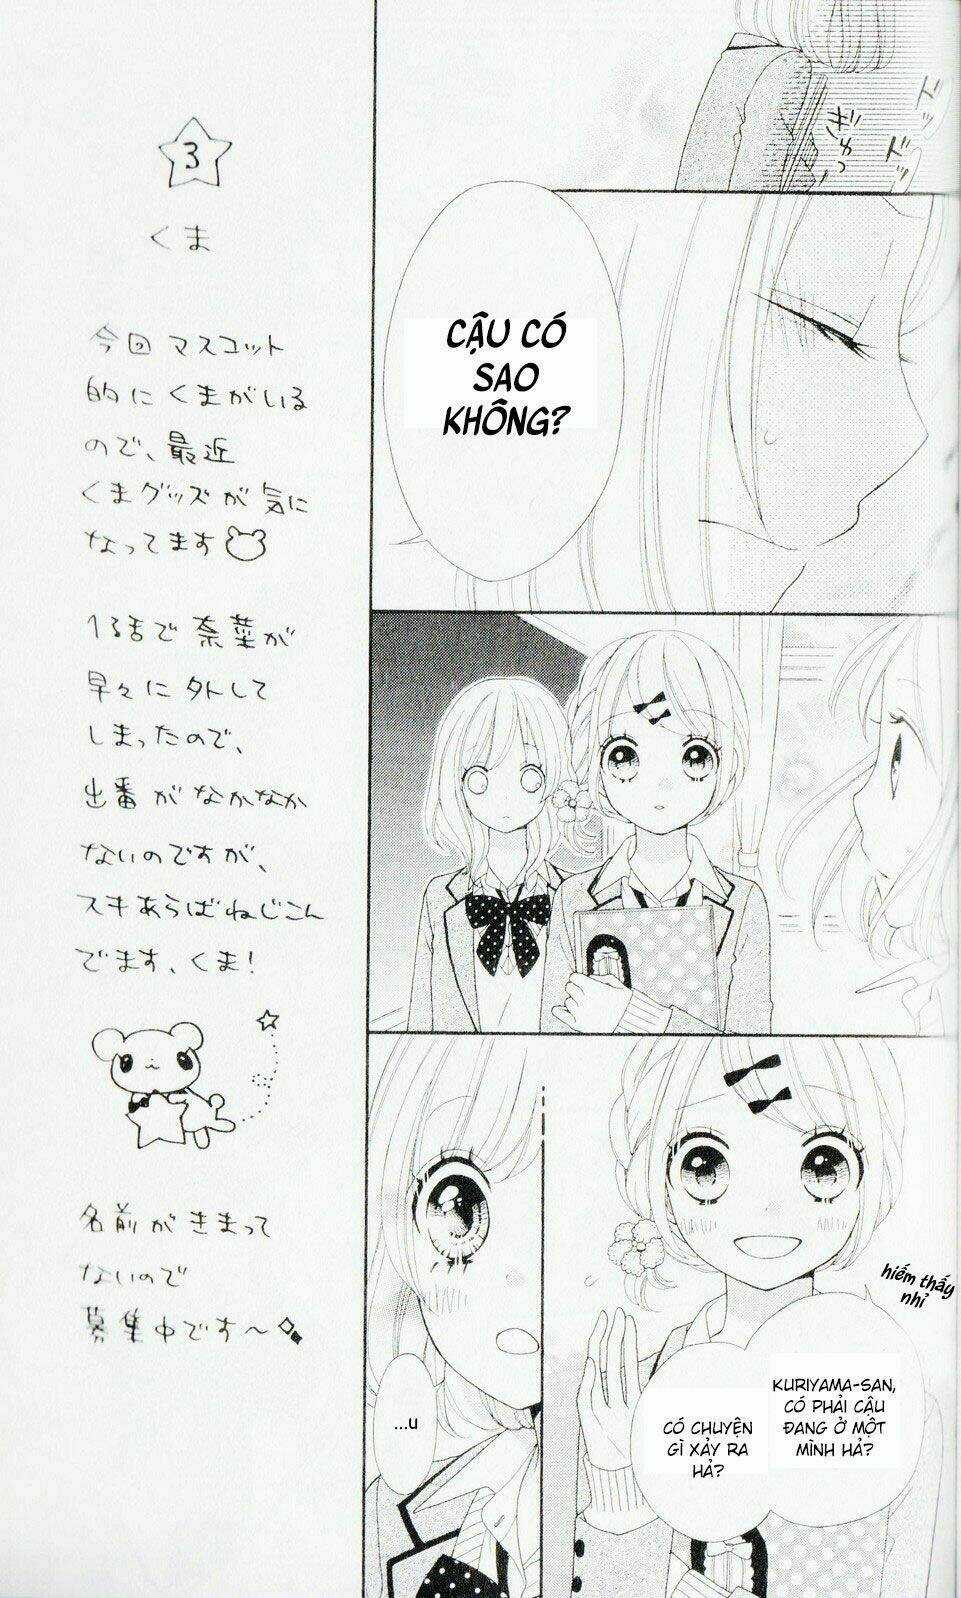 ズ
ズッ
ズ
ぎゅっ
CẬU CÓ
SAO
KHÔNG?
hiếm thấy
nhỉ
KURIYAMA-SAN,
CÓ PHẢI CẬU
ĐANG Ở MỘT
MÌNH HẢ?
CÓ CHUYỆN
GÌ XẢY RA
HẢ?
...U
3
くま
今回マスコット
的にくまがいる
ので、最近
くまグッズが気に
なってます
1話で奈菜が
早々に外して
しまったので、
出番がなかなか
ないのですが、
スキあらばねじこん
でます、くま!
名前がきまって
ないので
募集中です〜